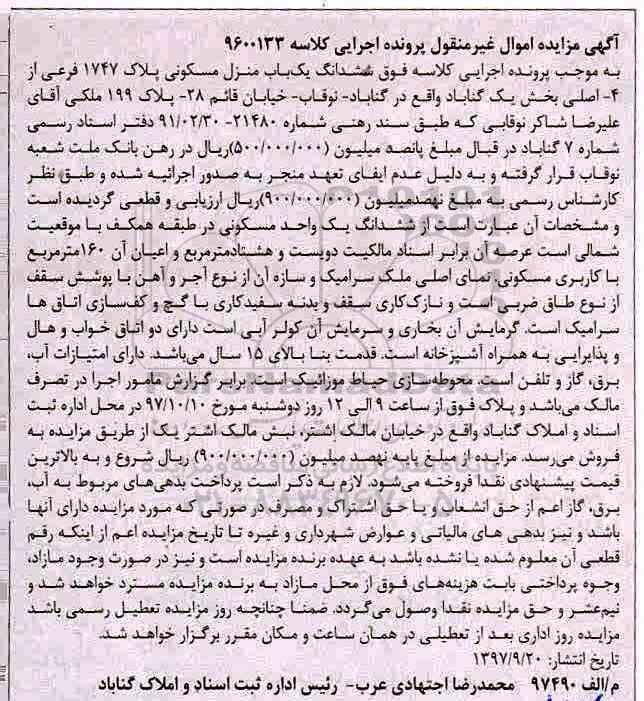 آگهی مزایده اموال غیرمنقول پرونده اجرایی کلاسه ۹۶۰۰۱۳۳
به موجب پرونده اجرایی کلاسه فوق ششدانگ یک‌باب منزل مسکونی پلاک ۱۷۴۷ فرعی از
۴- اصلی بخش یک گناباد واقع در گناباد- نوقاب- خیابان قائم ۲۸- پلاک ۱۹۹ ملکی آقای
علیرضا شاکر نوقابی که طبق سند رهنی شماره ۲۱۴۸۰- ۹۱/۰۲/۳۰ دفتر اسناد رسمی
شماره ۷ گناباد در قبال مبلغ پانصد میلیون (۵۰۰/۰۰۰/۰۰۰)ریال در رهن بانک ملت شعبه
نوقاب قرار گرفته و به دلیل عدم ایفای تعهد منجر به صدور اجرائیه شده و طبق نظر
کارشناس رسمی به مبلغ نهصدمیلیون (۹۰۰/۰۰۰/۰۰۰)ریال ارزیابی و قطعی گردیده است
و مشخصات آن عبارت است از ششدانگ یک واحد مسکونی در طبقه همکف با موقعیت
شمالی است عرصه آن برابر اسناد مالکیت دویست و هشتادمترمربع و اعیان آن ۱۶۰مترمربع
با کاربری مسکونی. نمای اصلی ملک سرامیک و سازه آن از نوع آجر و آهن با پوشش سقف
از نوع طاق ضربی است و نازک‌کاری سقف و بدنه سفیدکاری با گچ و کف‌سازی اتاق ها
سرامیک است. گرمایش آن بخاری و سرمایش آن کولر آبی است دارای دو اتاق خواب و هال
و پذیرایی به همراه آشپزخانه است. قدمت بنا بالای ۱۵ سال می‌باشد. دارای امتیازات آب،
برق، گاز و تلفن است. محوطه‌سازی حیاط موزائیک است. برابر گزارش مامور اجرا در تصرف
مالک می‌باشد و پلاک فوق از ساعت ۹ الی ۱۲ روز دوشنبه مورخ ۹۷/۱۰/۱۰ در محل اداره ثبت
اسناد و املاک گناباد واقع در خیابان مالک اشتر، نبش مالک اشتر یک از طریق مزایده به
فروش می‌رسد. مزایده از مبلغ پایه نهصد میلیون (۹۰۰/۰۰۰/۰۰۰) ریال شروع و به بالاترین
قیمت پیشنهادی نقدا فروخته می‌شود. لازم به ذکر است پرداخت بدهی‌های مربوط به آب،
برق، گاز اعم از حق انشعاب و یا حق اشتراک و مصرف در صورتی که مورد مزایده دارای آنها
باشد و نیز بدهی های مالیاتی و عوارض شهرداری و غیره تا تاریخ مزایده اعم از اینکه رقم
قطعی آن معلوم شده یا نشده باشد به عهده برنده مزایده است و نیز در صورت وجود مازاد،
وجوه پرداختی بابت هزینه‌های فوق از محل مازاد به برنده مزایده مسترد خواهد شد و
نیم‌عشر و حق مزایده نقدا وصول می‌گردد. ضمنا چنانچه روز مزایده تعطیل رسمی باشد
مزایده روز اداری بعد از تعطیلی در همان ساعت و مکان مقرر برگزار خواهد شد.
تاریخ انتشار: ۱۳۹۷/۹/۲۰
م/الف ۹۷۴۹۰ محمدرضا اجتهادی عرب- رئیس اداره ثبت اسناد و املاک گناباد